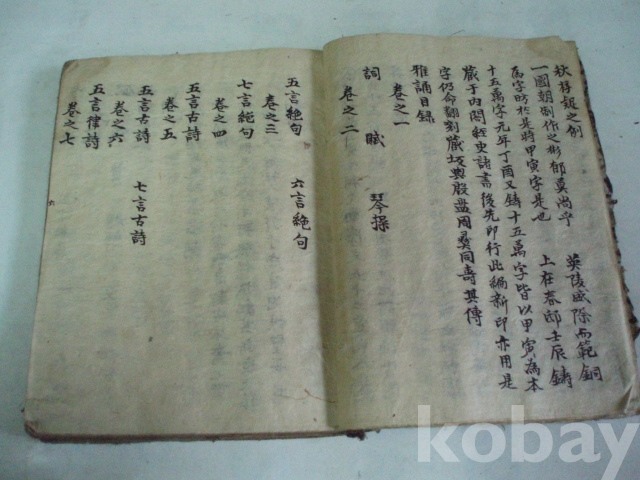 秋持報之例
一國朝制作之彬郁莫尚乎 英陵盛際而範銅
為字昉於是時甲寅字是也 上在春邸壬辰鑄
十五萬字元年丁酉又鑄十五萬字皆以甲寅為本
藏于內閣經史諸書後先印行此編新印亦用是
字仍命翻刻藏板與殷盘周彛同壽其傳
雅誦目錄
卷之一
詞賦 琴操
卷之二
五言絶句 六言絶句
卷之三
七言絶句
卷之四
五言古詩
卷之五
五言古詩 七言古詩
卷之六
五言律詩
卷之七
kobay